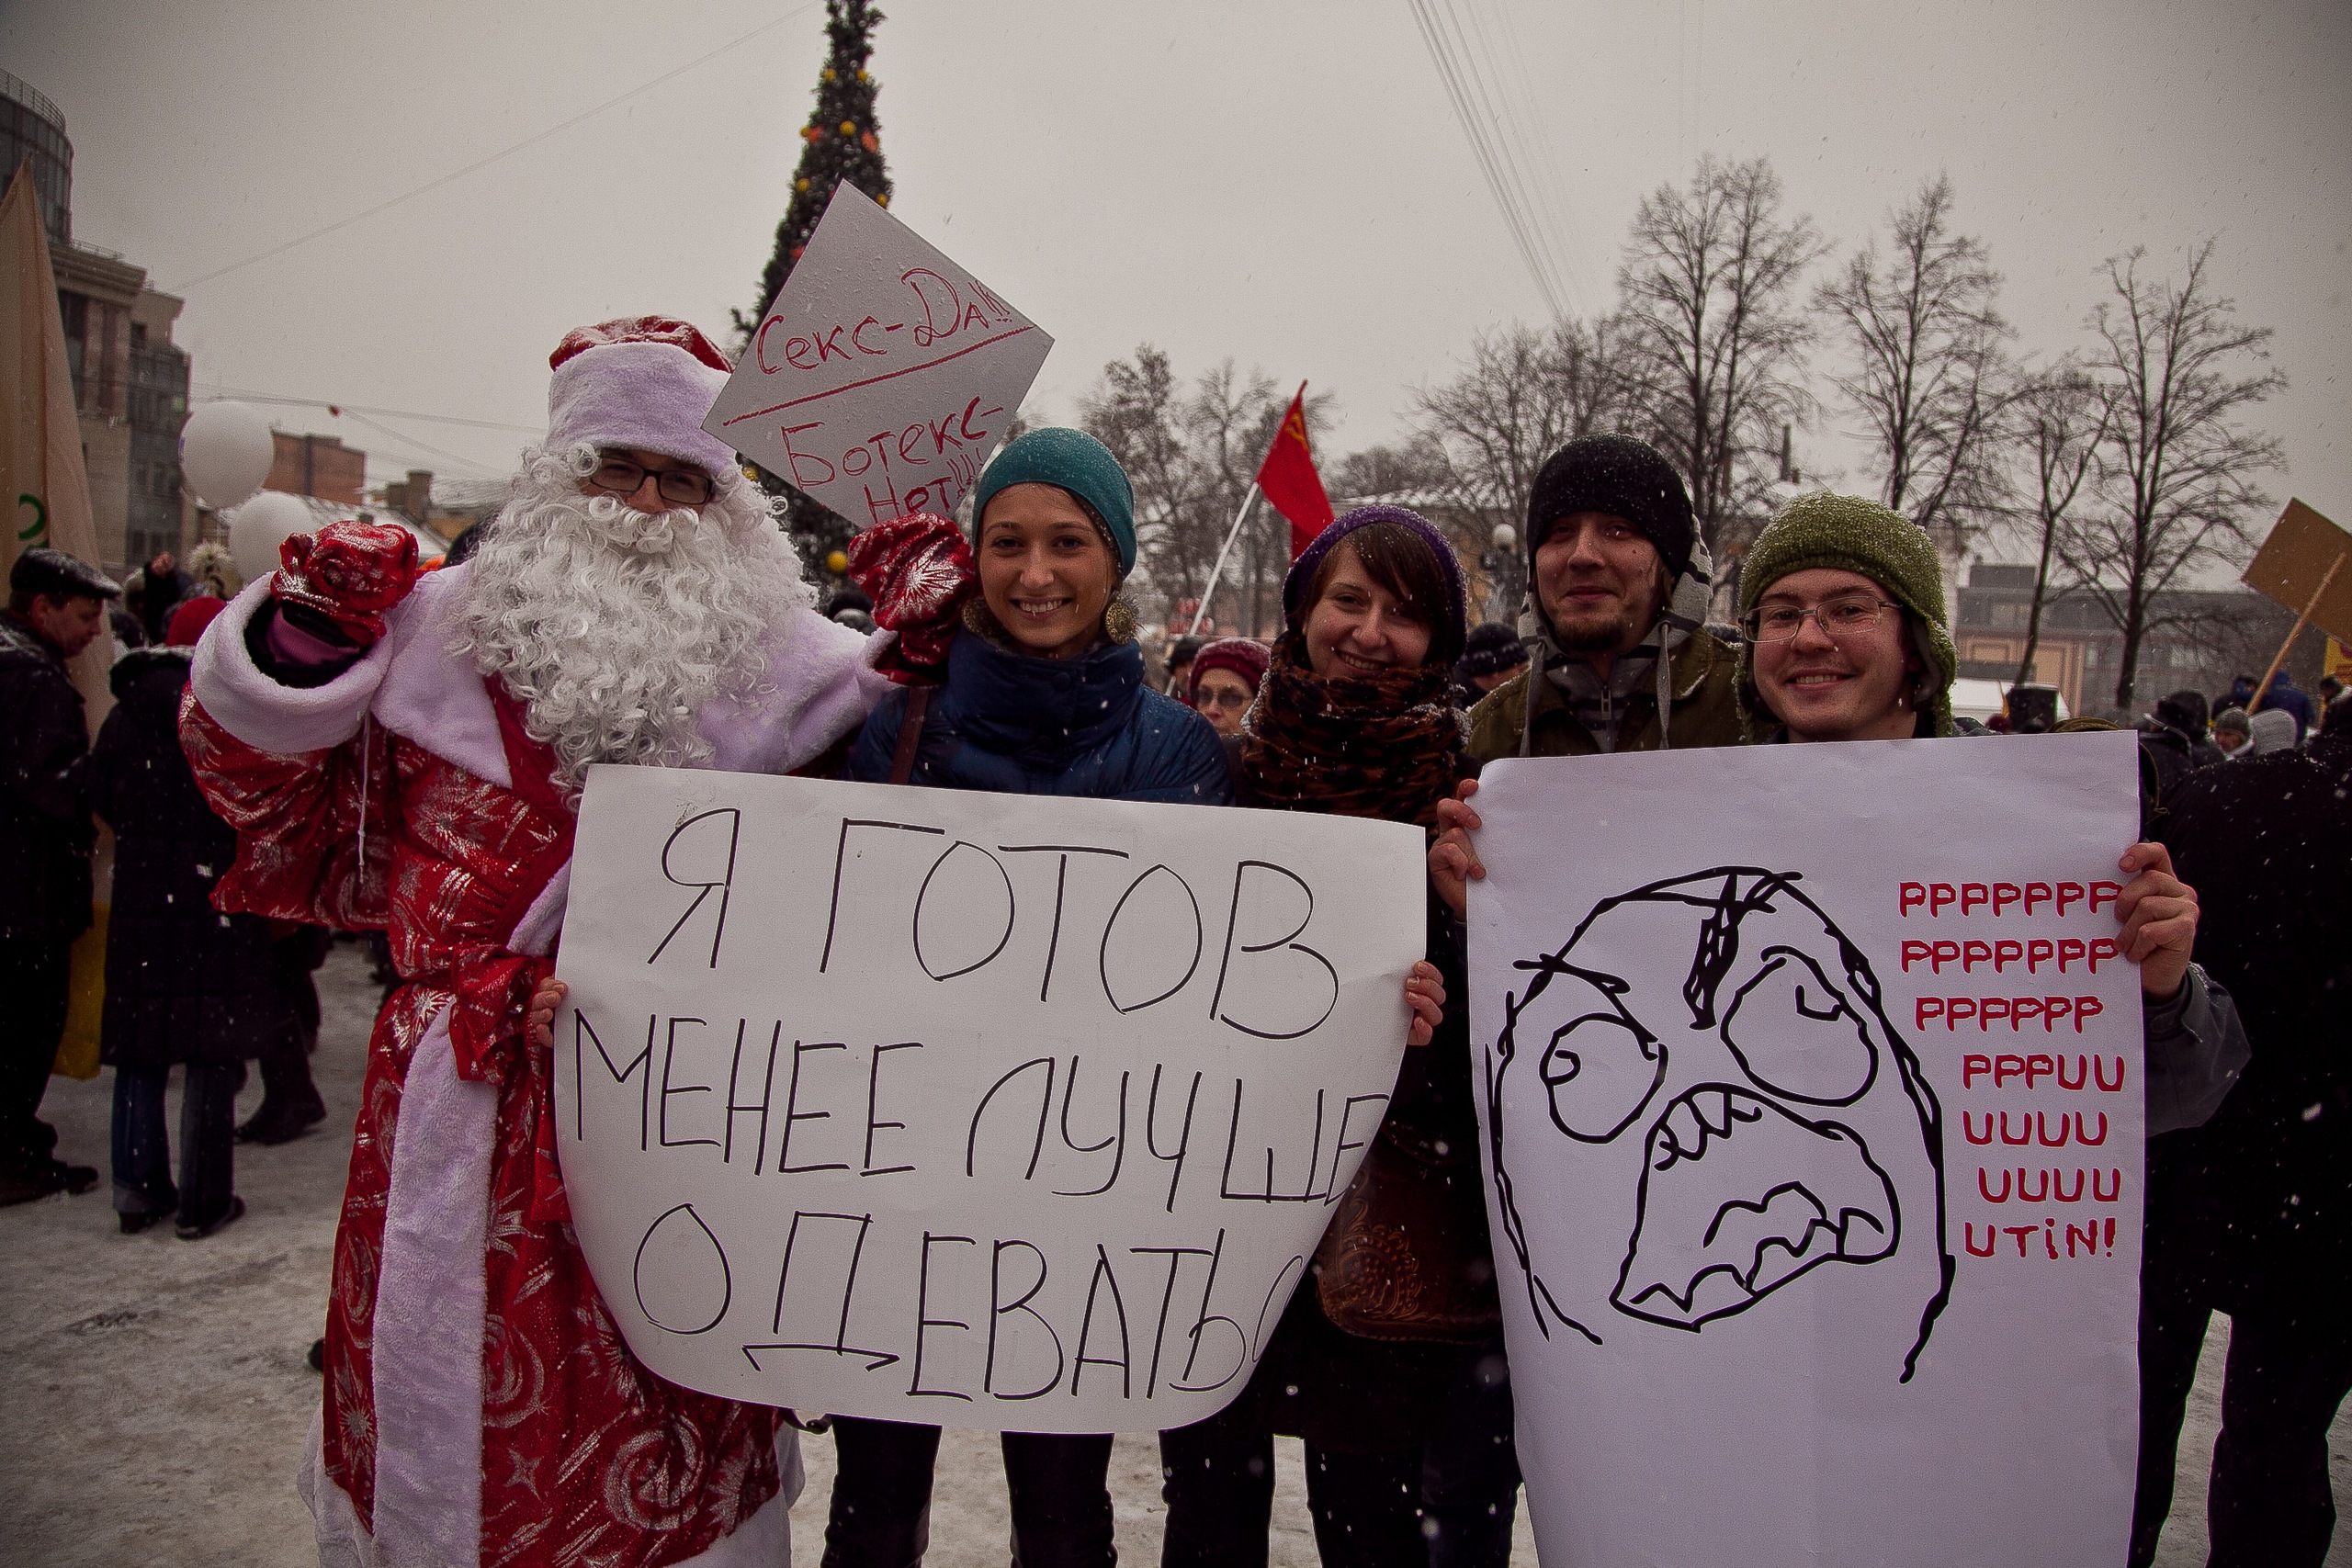 Секс-Да!!!
Ботекс-
Нет!!!
Я ГОТОВ
МЕНЕЕ ЛУЧШЕ
ОДЕВАТЬС
PPPPPPP
PPPPPPP
PPPPPP
PPPUU
UUUU
UUUU
UTiN!